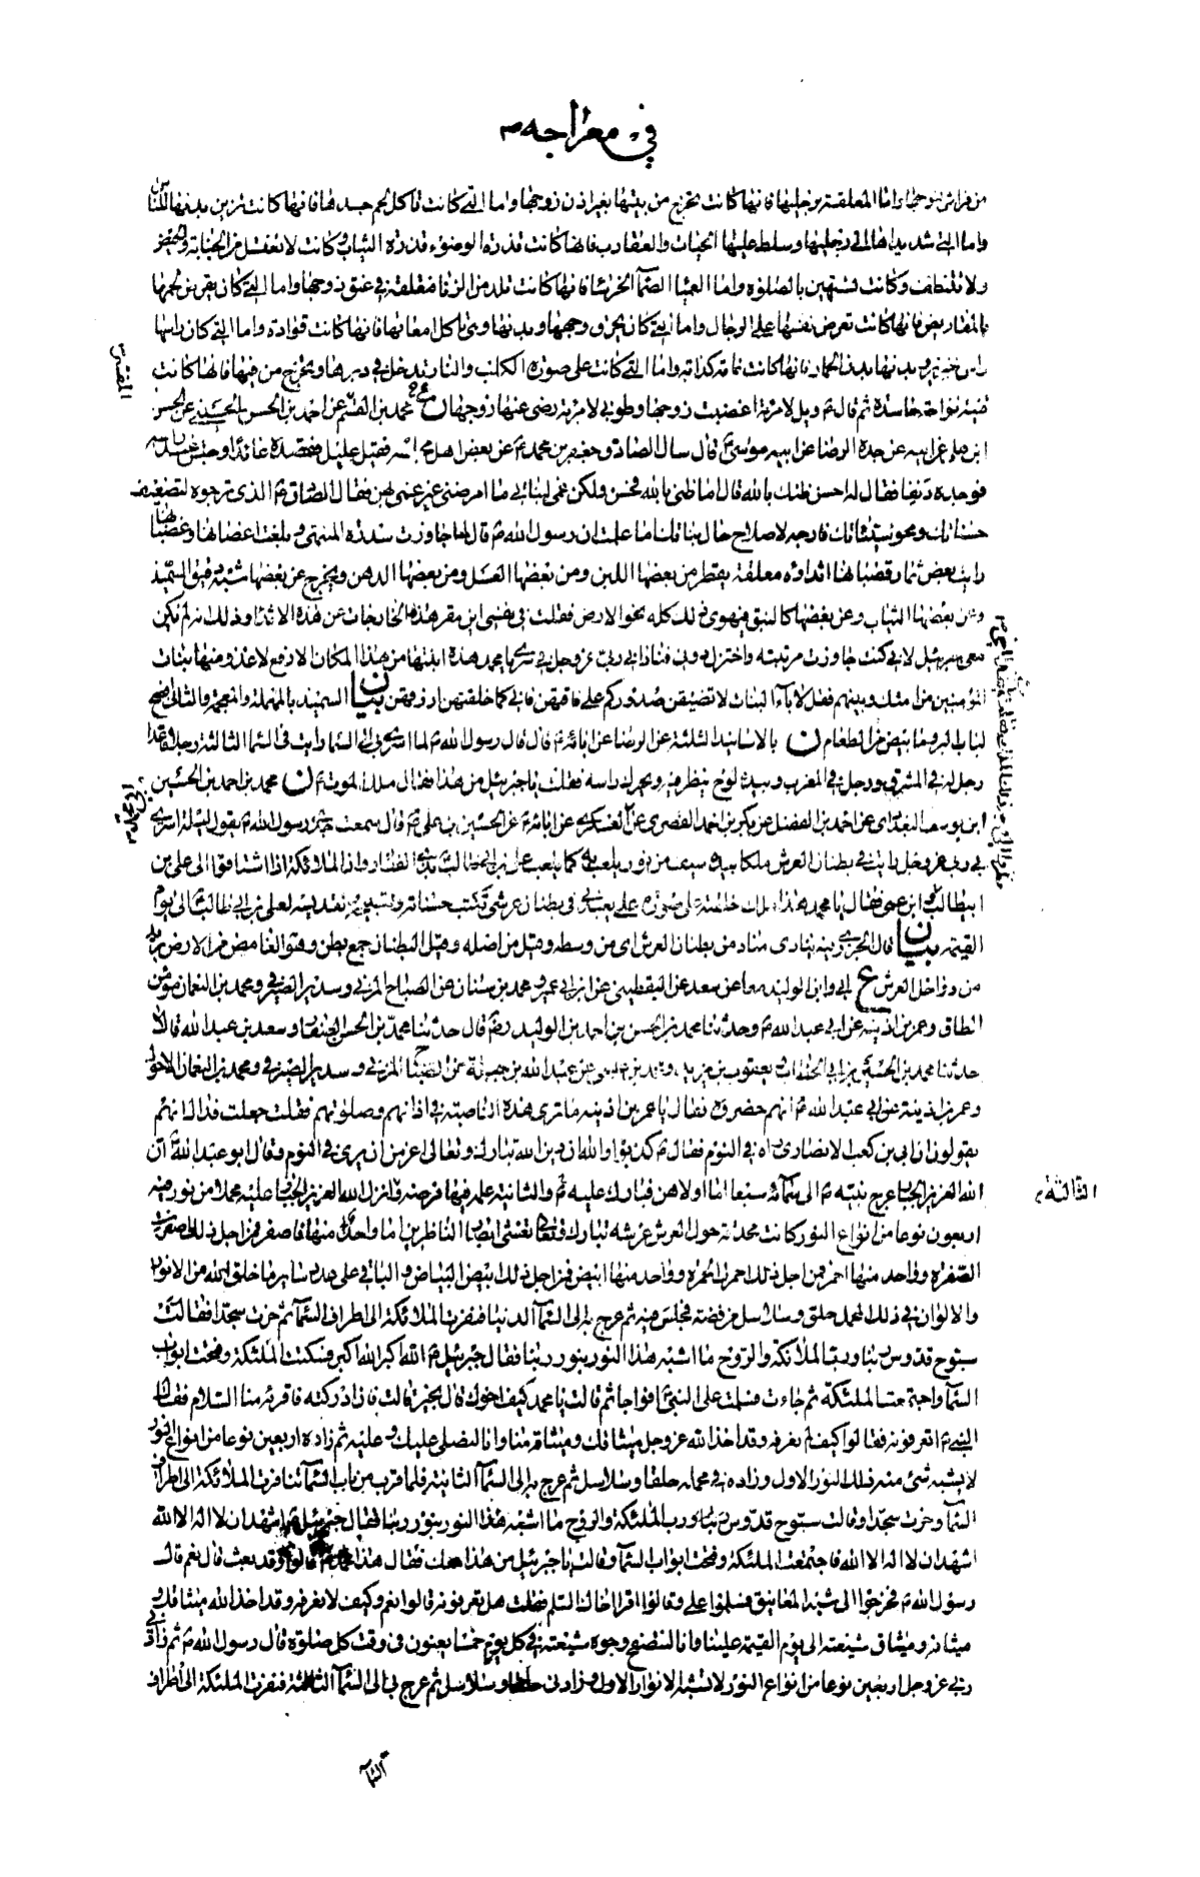 في معراجه ص
من فراش زوجها واما المعلقة برجليها فانها كانت تخرج من بيتها بغير اذن زوجها واما التي كانت تاكل لحم جسدها فانها كانت تزين بدنها للناس
واما التي شد يداها الى رجليها وسلط عليها الحيات والعقارب فانها كانت قذرة الوضوء قذرة الثياب وكانت لا تغتسل من الجنابة والحيض
ولا تتنظف وكانت تستهين بالصلوة واما العميا الصما الخرسا فانها كانت تلد من الزنا فتعلقه في عنق زوجها واما التي كان يقرض لحمها
بالمقاريض فانها كانت تعرض نفسها على الرجال واما التي كان يحرق وجهها وبدنها وهي تاكل امعائها فانها كانت قوادة واما التي كان راسها
راس خنزير وبدنها بدن الحمار فانها كانت نمامة كذابة واما التي كانت على صورة الكلب والنار تدخل في دبرها وتخرج من فيها فانها كانت
قينة نواحة حاسدة ثم قال ع ويل لامرئة اغضبت زوجها وطوبى لامرئة رضي عنها زوجها ن ع محمد بن القسم عن احمد بن الحسن الحسيني عن الحسن
ابن علي عن ابيه عن جده الرضا عن ابيه موسى ع قال سال الصادق جعفر بن محمد ع عن بعض اهل مجلسه فقيل عليل فقصده عائدا وجلس عند راسه
فوجده دنفا فقال له احسن ظنك بالله قال اما ظني بالله فحسن ولكن غمي لبناتي ما امرضني غير غمي بهن فقال الصادق ع الذي ترجوه لتضعيف
حسناتك ومحو سيئاتك فارجه لاصلاح حال بناتك اما علمت ان رسول الله ص قال لما جاوزت سدرة المنتهى وبلغت اغصانها وقضبانها
رايت بعض ثمار قضبانها اثداؤه معلقة يقطر من بعضها اللبن ومن بعضها العسل ومن بعضها الدهن ويخرج عن بعضها شبه دقيق السميذ
وعن بعضها الثياب وعن بعضها كالنبق فيهوي ذلك كله نحو الارض فقلت في نفسي اين مقر هذه الخارجات عن هذه الاثداء وذلك انه لم يكن
معي جبرئيل لاني كنت جاوزت مرتبته واختزل دوني فناداني ربي عز وجل في سري يا محمد هذه انبتها من هذا المكان الارفع لاغذو منها بنات
المؤمنين من امتك وبنيهم فقل لآباء البنات لا تضيقن صدوركم على فاقتهن فاني كما خلقتهن ارزقهن بيان السميذ بالمهملة والمعجمة والثاني افصح
لباب البر وما ابيض من الطعام ن بالاسانيد الثلثة عن الرضا عن ابائه ع قال قال رسول الله ص لما اسري بي الى السما رايت في السما الثالثة رجلا قاعدا
رجل له في المشرق ورجل في المغرب وبيده لوح ينظر فيه ويحرك راسه فقلت يا جبرئيل من هذا فقال ملك الموت ع ن محمد بن احمد بن الحسين
ابن يوسف البغدادي عن احمد بن الفضل عن بكر بن احمد القصري عن العسكري عن ابائه ع عن الحسين بن علي ع قال سمعت جدي رسول الله ص يقول ليلة اسري
بي ربي عز وجل رايت في بطنان العرش ملكا بيده سيف من نور يلعب به كما يلعب علي بن ابي طالب بذي الفقار واذا الملائكة اذا اشتاقوا الى علي بن
ابيطالب
القيمة بيان قال الجزري فيه ينادي مناد من بطنان العرش اي من وسطه وقيل من اصله وقيل البطنان جمع بطن وهو الغامض من الارض يريد
من دواخل العرش ع ابي وابن الوليد معا عن سعد عن اليقطيني عن ابن ابي عمير ومحمد بن سنان عن الصباح المزني وسدير الصيرفي ومحمد بن النعمان مؤمن
الطاق وعمر بن اذينة عن ابي عبد الله ع وحدثنا محمد بن الحسن بن احمد بن الوليد رضه قال حدثنا محمد بن الحسن الصفار وسعد بن عبد الله قالا
حدثنا محمد بن الحسين بن ابي الخطاب ويعقوب بن يزيد ومحمد بن عيسى عن عبد الله بن جبلة عن الصباح المزني وسدير الصيرفي ومحمد بن النعمان الاحول
وعمر بن اذينة عن ابي عبد الله ع انهم حضروه فقال يا عمر بن اذينه ما ترى هذه الناصبة في اذانهم وصلوتهم فقلت جعلت فداك انهم
يقولون ان ابي بن كعب الانصاري راه في النوم فقال ع كذبوا والله ان دين الله تبارك وتعالى اعز من ان يرى في النوم وقال ابو عبد الله ع ان
الله العزيز الجبار عرج بنبيه ص الى سمائه سبعا اما اولاهن فبارك عليه ص والثانية علمه فيها فرضه فانزل الله العزيز الجبار عليه محملا من نور فيه
اربعون نوعا من انواع النور كانت محدقة حول العرش عرشه تبارك وتعالى تغشى ابصار الناظرين اما واحد منها فاصفر فمن اجل ذلك اصفرت
الصفرة وواحد منها احمر فمن اجل ذلك احمرت الحمرة وواحد منها ابيض فمن اجل ذلك ابيض البياض والباقي على عدد ساير ما خلق الله من الانوار
والالوان في ذلك المحمل حلق وسلاسل من فضة فجلس فيه ثم عرج به الى السماء الدنيا فنفرت الملائكة الى اطراف السماء ثم خرت سجدا فقالت
سبوح قدوس ربنا ورب الملائكة والروح ما اشبه هذا النور بنور ربنا فقال جبرئيل ع الله اكبر الله اكبر فسكتت الملئكة وفتحت ابواب
السماء واجتمعت الملئكة ثم جاءت فسلمت على النبي ص افواجا ثم قالت يا محمد كيف اخوك قال بخير قالت فان ادركته فاقرئه منا السلام فقال
النبي ص اتعرفونه فقالوا كيف لم نعرفه وقد اخذ الله عز وجل ميثاقك وميثاقه منا وانا لنصلي عليك وعليه ثم زاده اربعين نوعا من انواع النور
لا يشبه شئ منه ذلك النور الاول وزاده في محمله حلقا وسلاسل ثم عرج به الى السماء الثانية فلما قرب من باب السماء تنافرت الملائكة الى اطراف
السماء وخرت سجدا وقالت سبوح قدوس ربنا ورب الملئكة والروح ما اشبه هذا النور بنور ربنا فقال جبرئيل ع اشهد ان لا اله الا الله
اشهد ان لا اله الا الله فاجتمعت الملئكة وفتحت ابواب السماء وقالت يا جبرئيل من هذا معك فقال هذا محمد ص قالوا وقد بعث قال نعم قال
رسول الله ص فخرجوا الى شبه المعانيق فسلموا علي وقالوا اقرا اخاك السلم فقلت هل تعرفونه قالوا نعم وكيف لا نعرفه وقد اخذ الله ميثاقك و
ميثاقه وميثاق شيعته الى يوم القيمة علينا وانا لنتصفح وجوه شيعته في كل يوم خمسا يعنون في وقت كل صلوة قال رسول الله ص ثم زادني
ربي عز وجل اربعين نوعا من انواع النور لا تشبه الانوار الاول وزادني حلقا وسلاسل ثم عرج بي الى السماء الثالثة فنفرت الملئكة الى اطراف
السماء
المفسر
الثالثة